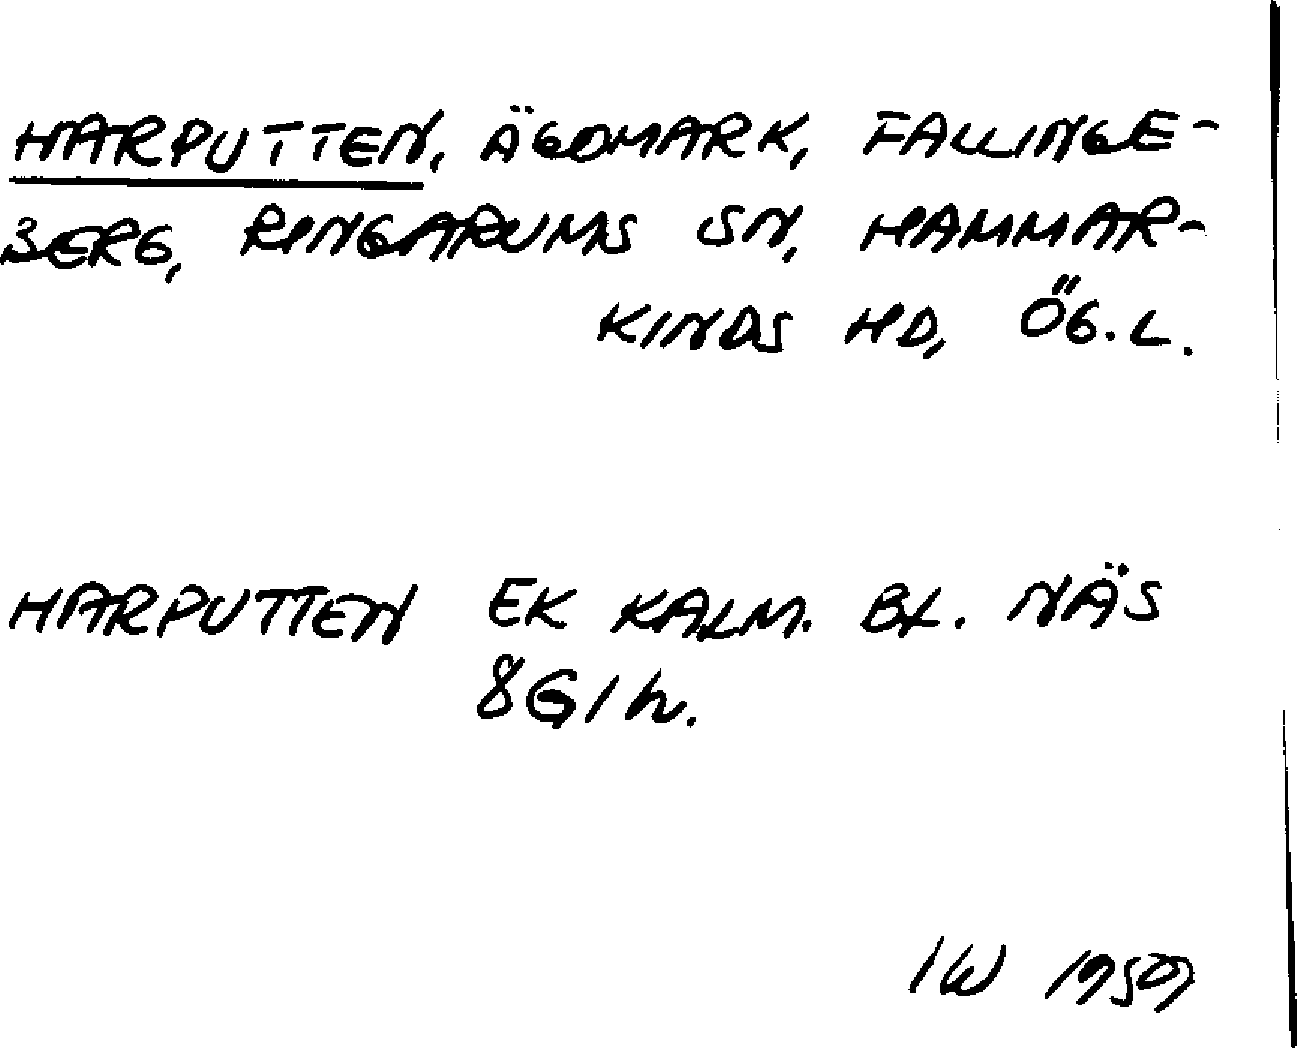 HARPUTTEN, ÄGOMARK, FALLINGE-
BERG, RINGARUMS SN, HAMMAR-
KINDS HD, ÖG.L.
HARPUTTEN EK KALM. BL. NÄS
8G1h.
IW 1959